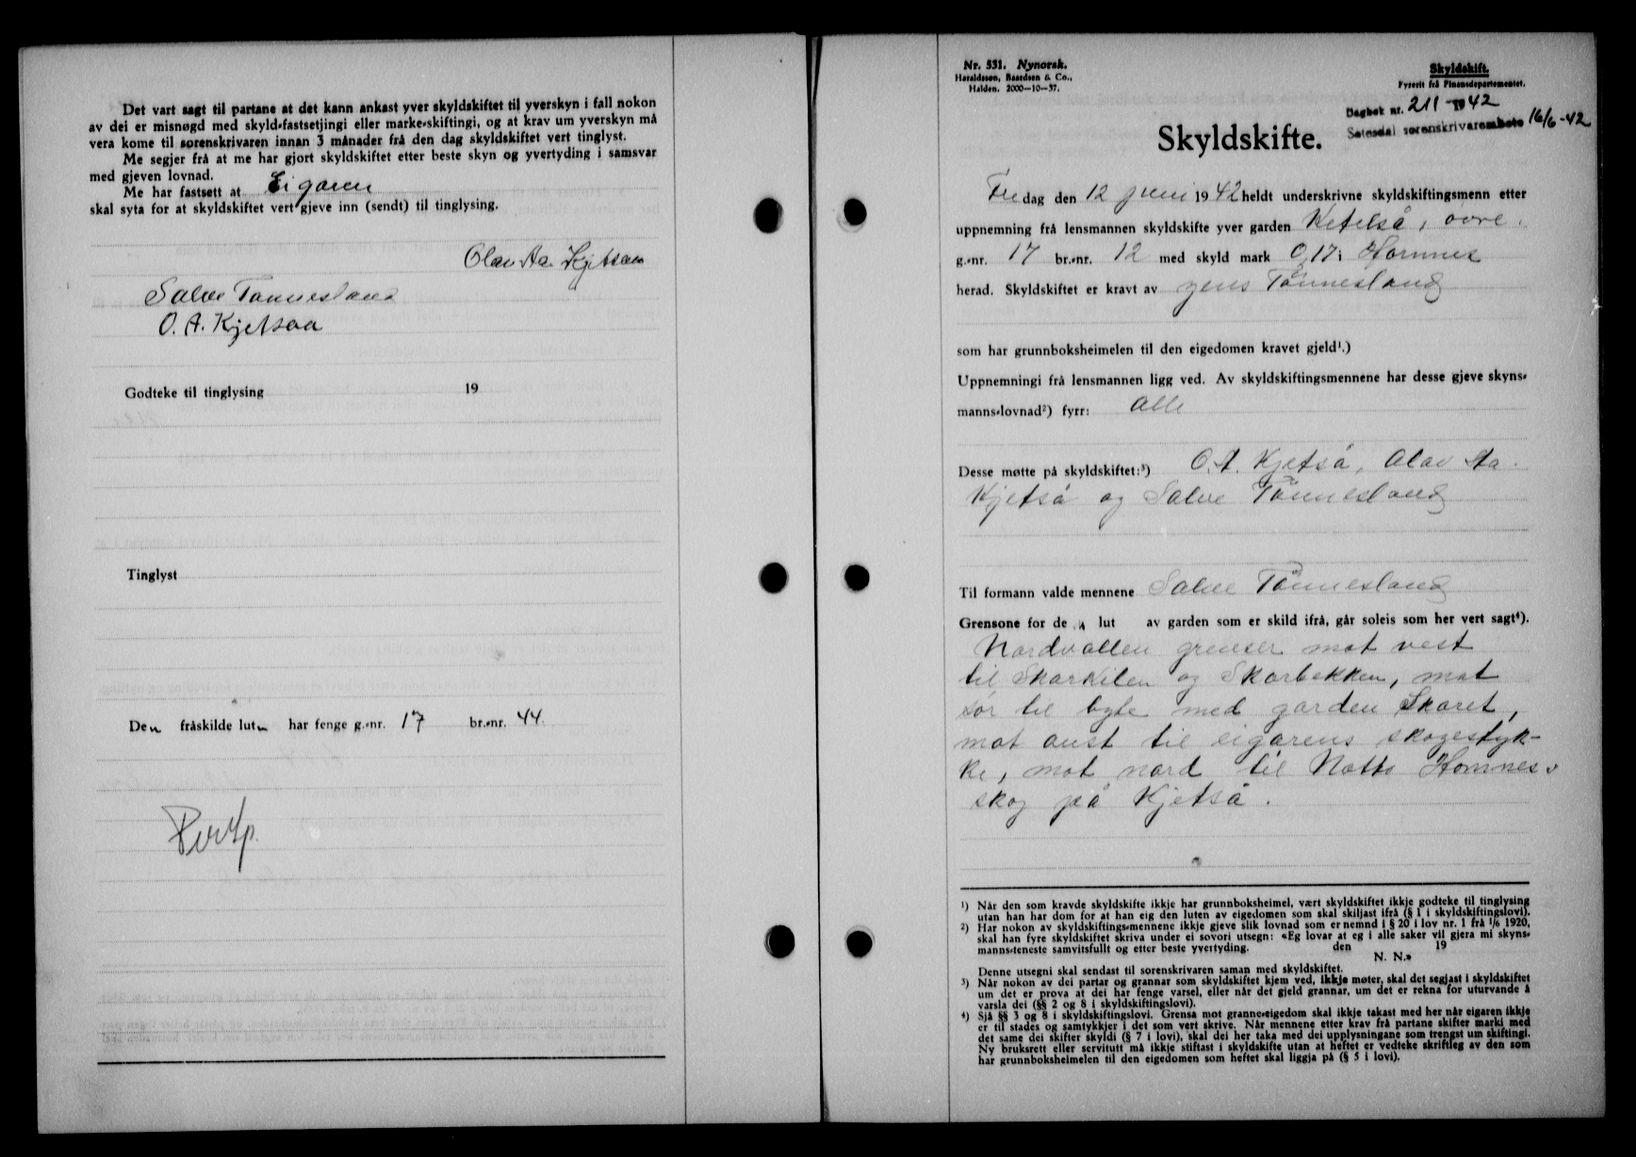 Det vart sagt til partane at det kann ankast yver skyldskiftet til yverskyn i fall nokon
av dei er misnøgd med skyld-fastsetjingi eller marke-skiftingi, og at krav um yverskyn må
vera kome til sorenskrivaren innan 3 månader frå den dag skyldskiftet vert tinglyst.
Me segjer frå at me har gjort skyldskiftet etter beste skyn og yvertyding i samsvar
med gjeven lovnad.
Me har fastsett at Eigaren
skal syta for at skyldskiftet vert gjeve inn (sendt) til tinglysing.
Olav Aa. Kjetsaa
Salve Tønnesland
O. A. Kjetsaa
Godteke til tinglysing 19
Tinglyst
Den fråskilde luten har fenge g.-nr. 17 br.-nr. 44.
Nr. 531. Nynorsk.
Haraldssen, Baardsen & Co.,
Halden. 2000—10—37.
Skyldskift.
Fyrerit frå Finansdepartementet.
Dagbok nr. 211 - 1942
Setesdal sorenskrivarembete 16/6-42
Skyldskifte.
Fredag den 12 juni 1942 heldt underskrivne skyldskiftingsmenn etter
uppnemning frå lensmannen skyldskifte yver garden Ketilså, øvre.
g.-nr. 17 br.-nr. 12 med skyld mark 0,17 i Hornnes
herad. Skyldskiftet er kravt av Jens Tønnesland
som har grunnboksheimelen til den eigedomen kravet gjeld¹.)
Uppnemningi frå lensmannen ligg ved. Av skyldskiftingsmennene har desse gjeve skyns-
manns-lovnad²) fyrr: Alle
Desse møtte på skyldskiftet:³) O. A. Kjetså, Olav Aa.
Kjetså og Salve Tønnesland
Til formann valde mennene Salve Tønnesland
Grensone for de n lut av garden som er skild ifrå, går soleis som her vert sagt⁴).
Nordvallen grenser mot vest
til Skarkilen og Skarbekken, mot
sør til byte med garden Skaret,
mot aust til eigarens skogestyk-
ke, mot nord til Notto Hornnes
skog på Kjetså.
¹) Når den som kravde skyldskifte ikkje har grunnboksheimel, vært skyldskiftet ikkje godteke til tinglysing
utan han har dom for at han eig den luten av eigedomen som skal skiljast ifrå (§ 1 i skyldskiftingslovi).
²) Har nokon av skyldskiftings-mennene ikkje gjeve slik lovnad som er nemnd i § 20 i lov nr. 1 frå 1/6 1920,
skal han fyre skyldskiftet skriva under ei sovori utsegn: «Eg lovar at eg i alle saker vil gjera mi skyns-
manns-teneste samvitsfullt og etter beste yvertyding. den 19
N. N.»
Denne utsegni skal sendast til sorenskrivaren saman med skyldskiftet.
³) Når nokon av dei partar og grannar som skyldskiftet kjem ved, ikkje møter, skal det segjast i skyldskiftet
um det er prova at dei har fenge varsel, eller når det gjeld grannar, um det er rekna for uturvande å
varsla dei (§§ 2 og 8 i skyldskiftingslovi).
⁴) Sjå §§ 3 og 8 i skyldskiftingslovi. Grensa mot granne-eigedom skal ikkje takast med her når eigaren ikkje
er til stades og samtykkjer i det som vert skrive. Når mennene etter krav frå partane skifter marki med
det same dei skifter skyldi (§ 7 i lovi), skal dei her taka med dei upplysningane som trengst um skiftingi.
Ny bruksrett eller servitutt må ikkje stiftast i skyldskifte utan at heftet er vedteke skriftleg av den som
har grunnboksheimelen til den eigedomen som heftet skal liggja på (§ 5 i lovi).